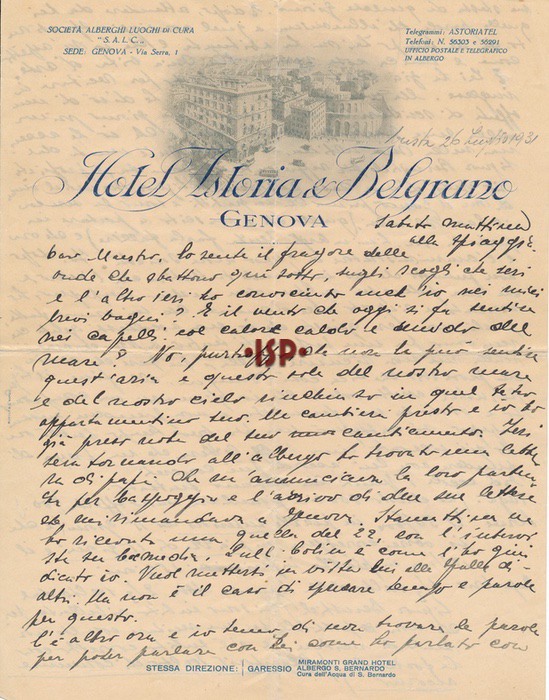 SOCIETÀ ALBERGHI LUOGHI DI CURA
"S.A.L.C."
SEDE: GENOVA - Via Serra, 1
Telegrammi: ASTORIATEL
Telefoni: N. 56303 e 56291
UFFICIO POSTALE E TELEGRAFICO
IN ALBERGO
26 Luglio 1931
Hotel Astoria & Belgrano
GENOVA
Sabato mattina
alla spiaggia
Caro Maestro, lo sente il fragore delle
onde che sbattono qui sotto, sugli scogli che ieri
e l'altro ieri ho conosciuto anch'io nei miei
brevi bagni? E il vento che oggi si fa sentire
nei capelli col calore caldo e umido del
mare? No, non la può sentire
quest'aria e questo sole del nostro mare
e del nostro cielo rinchiuso in quel tetro
appartamentino suo. Ma cantiere presto e io ho
già preso nota del suo cantiamento. Ieri
sera tornando all'albergo ho trovato una lette
ra di papà che mi annunciava la loro parten
za per e l'arrivo di due sue lettere
che mi rimandava a Genova. Stamattina ne
ho ricevuta una quella del 22, con l'intervi
sta su Comoedia. Sull' è come l'ho giu
dicato io. Vuol mettersi in vista lui alle spalle di
altri. Ma non è il caso di sprecare tempo e parole
per questo.
C'è altro ora e io temo di non trovare le parole
per poter parlare con Lei come ho parlato con
STESSA DIREZIONE: GARESSIO
MIRAMONTI GRAND HOTEL
ALBERGO S. BERNARDO
Cura dell'Acqua di S. Bernardo
ISP